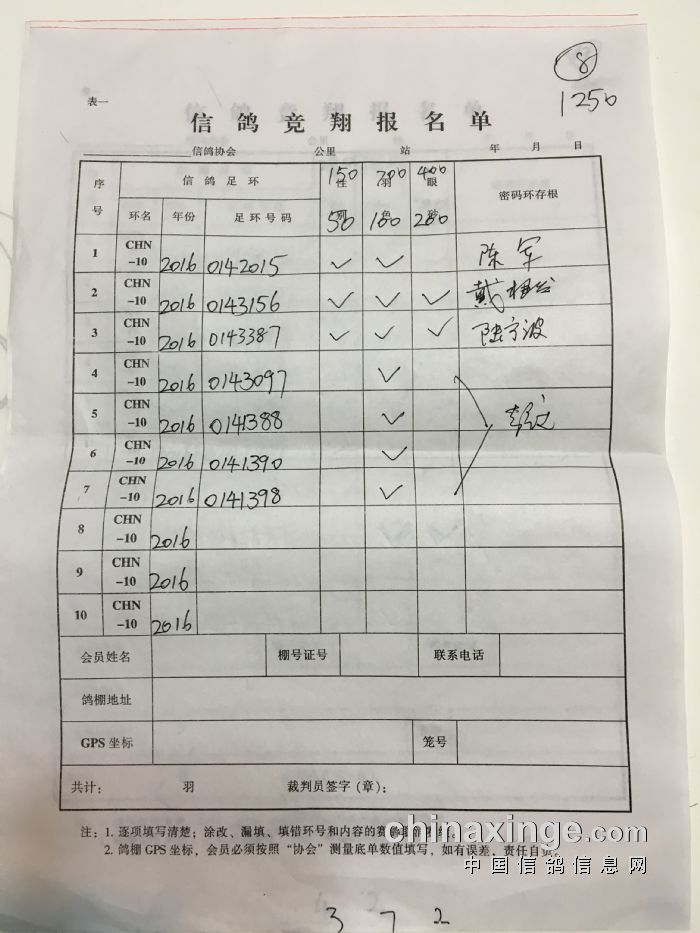 ⑧
1250
表一
信鸽竞翔报名单
信鸽协会 公里 站 年 月 日
序号 信鸽足环 150 性 50 700 羽 100 400 眼 200 密码环存根
环名 年份 足环号码
1 CHN-10 2016 0142015 ✓ ✓ 陈军
2 CHN-10 2016 0143156 ✓ ✓ ✓ 戴
3 CHN-10 2016 0143387 ✓ ✓ ✓ 陆宁波
4 CHN-10 2016 0143097 ✓
5 CHN-10 2016 0141388 ✓
6 CHN-10 2016 0141390 ✓
7 CHN-10 2016 0141398 ✓
8 CHN-10 2016
9 CHN-10 2016
10 CHN-10 2016
会员姓名 棚号证号 联系电话
鸽棚地址
GPS坐标 笼号
共计： 羽 裁判员签字（章）：
注：1. 逐项填写清楚；涂改、漏填、填错环号和内容的
2. 鸽棚GPS坐标，会员必须按照“协会”测量底单数值填写，如有误差，责任自负。
chinaxinge.com
中国信鸽信息网
3 7 2